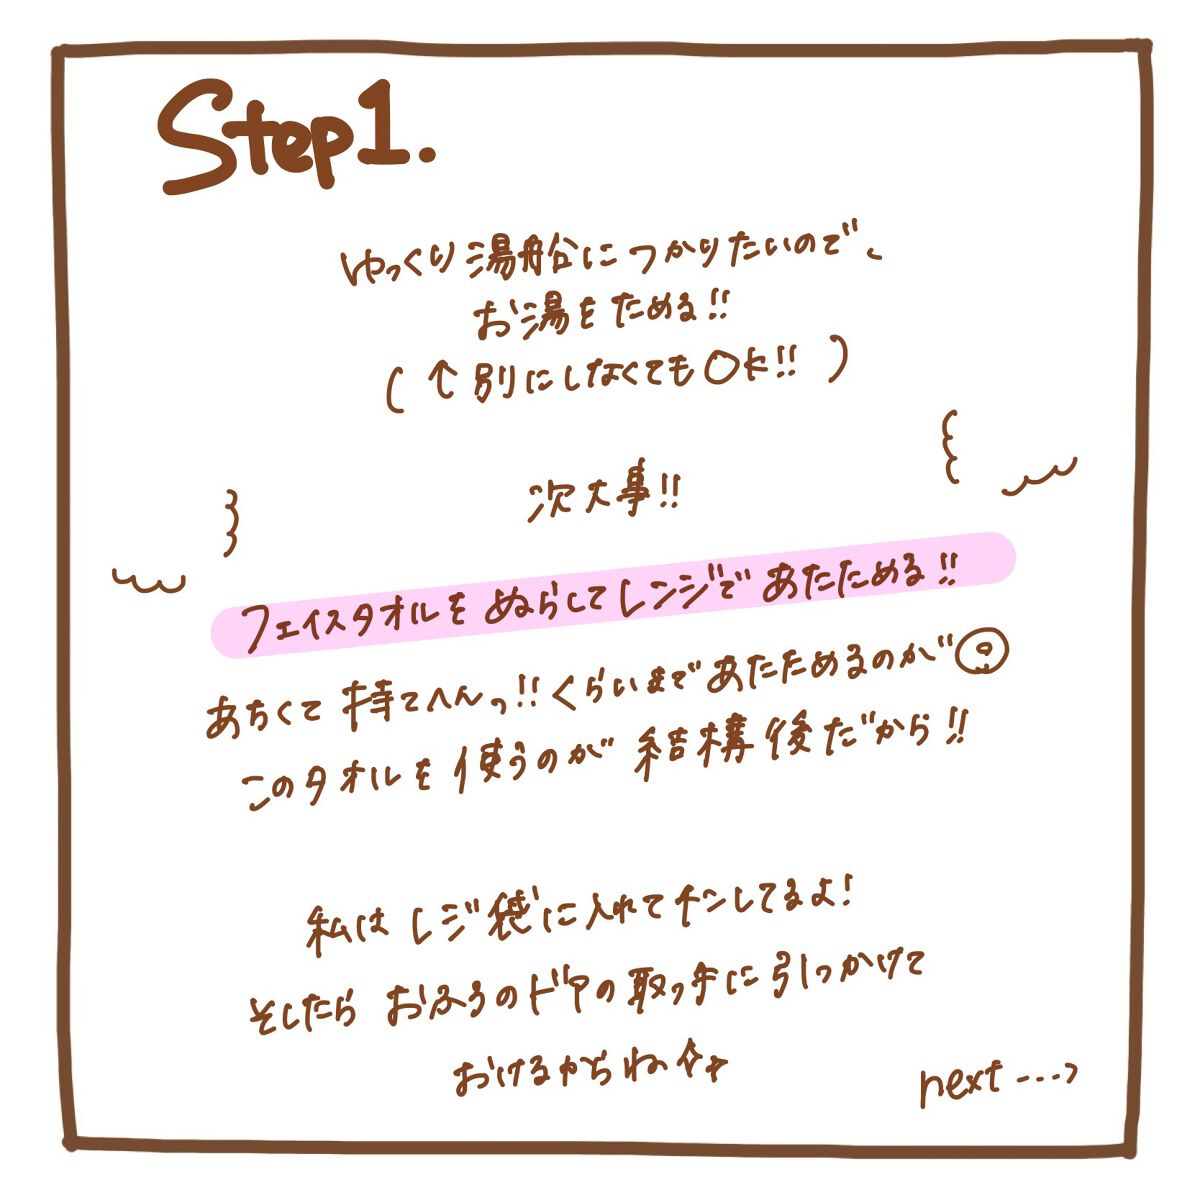 Step1.
ゆっくり湯船につかりたいので、
お湯をためる!!
(↑別にしなくてもOK!!)
次大事!!
フェイスタオルをぬらしてレンジであたためる!!
あちくて持てへんっ!!くらいまであたためるのが
このタオルを使うのが結構後だから!!
私はレジ袋に入れてチンしてるよ!
そしたらおふろのドアの取っ手に引っかけて
おけるからね
next---->